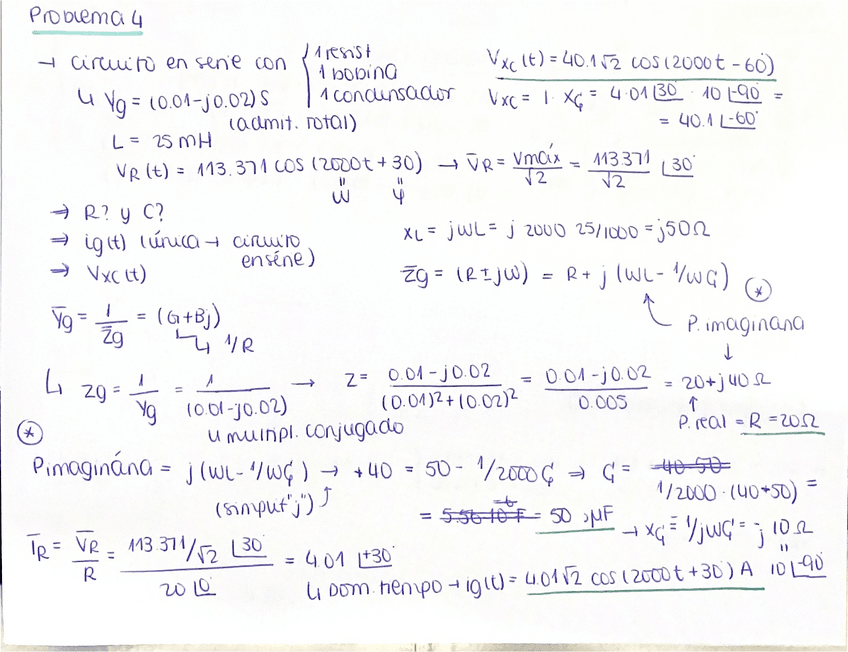 Problema 4
→ circuito en serie con { 1 resist
1 bobina
1 condensador
↳ Yg = (0.01-j0.02) S
(admit. total)
L = 25 mH
VR(t) = 113.371 cos (2000t + 30) → V̄R = Vmáx/√2 = 113.371/√2 ∠30°
" "
ω φ
⇒ R? y C?
⇒ ig(t) (única → circuito
en serie)
⇒ Vxc(t)
Vxc(t) = 40.1√2 cos(2000t - 60°)
Vxc = I · XC = 4.01∠30° · 10∠-90° =
= 40.1∠-60°
XL = jωL = j 2000 25/1000 = j50Ω
Z̄g = (R ± jω) = R + j (ωL - 1/ωC) (*)
P. imaginaria
↓
Ȳg = 1/Z̄g = (G + Bj)
↳ 1/R
↳ Zg = 1/Yg = 1/(0.01-j0.02) → Z = 0.01-j0.02/(0.01)²+(0.02)² = 0.01-j0.02/0.005 = 20+j40Ω
↳ multipl. conjugado
↑
P. real = R = 20Ω
(*)
P. imaginária = j(ωL - 1/ωC) → +40 = 50 - 1/2000C ⇒ C = 40-50
1/2000·(40+50) =
(sin put "j")
= 5.56·10⁻⁶F = 50 µF → XC = 1/jωC = -j 10Ω
"
10∠-90°
ĪR = V̄R/R = 113.371/√2 ∠30°/20∠0° = 4.01 ∠+30°
↳ Dom. tiempo → ig(t) = 4.01√2 cos(2000t + 30°) A